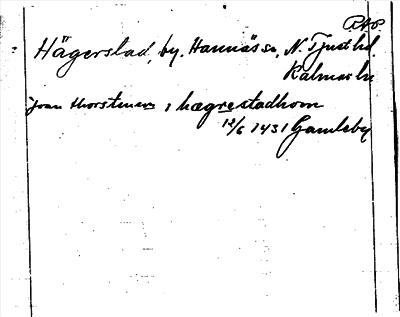 RAP
Hägerstad, by. Hannäs sn, N. Tjust hd
Kalmar ln
Joan Thorstensson i hægrestadhom
12/6 1431 Gamleby